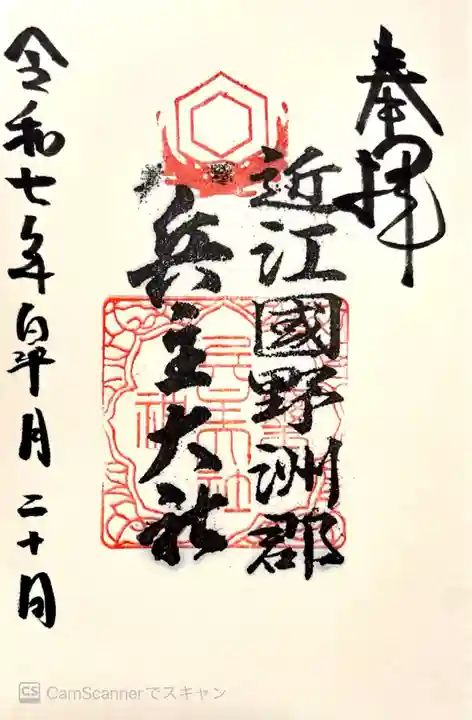 奉拝
近江國野洲郡
兵主大社
令和七年
月二十日
CS CamScannerでスキャン